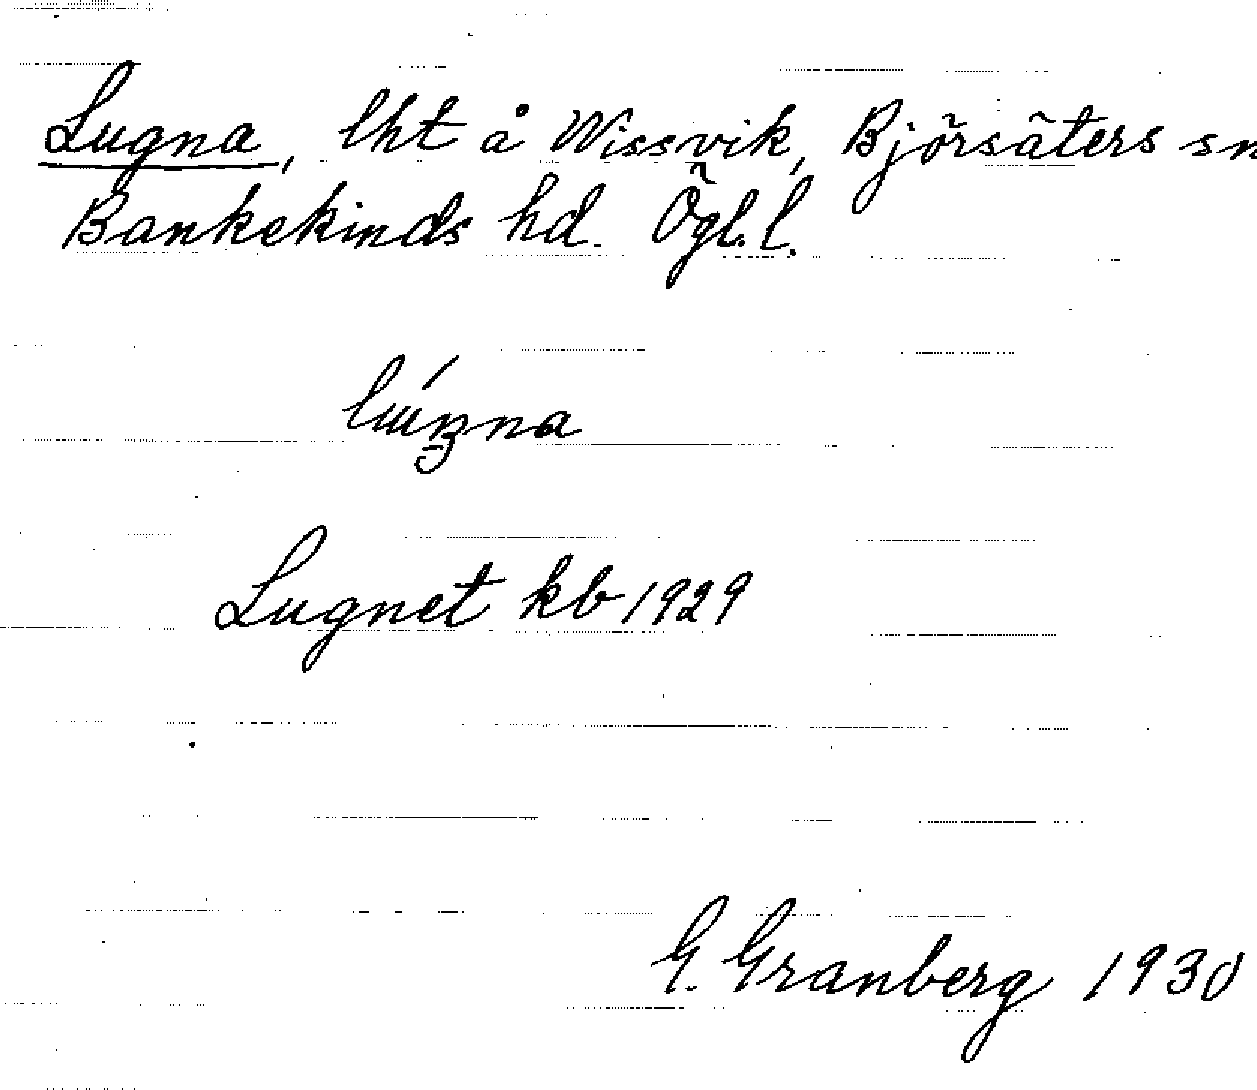 Lugna, lht å Wissvik, Björsäters sn
Bankekinds hd. Ögl. l.
Lugnet kb 1929
G. Granberg 1930